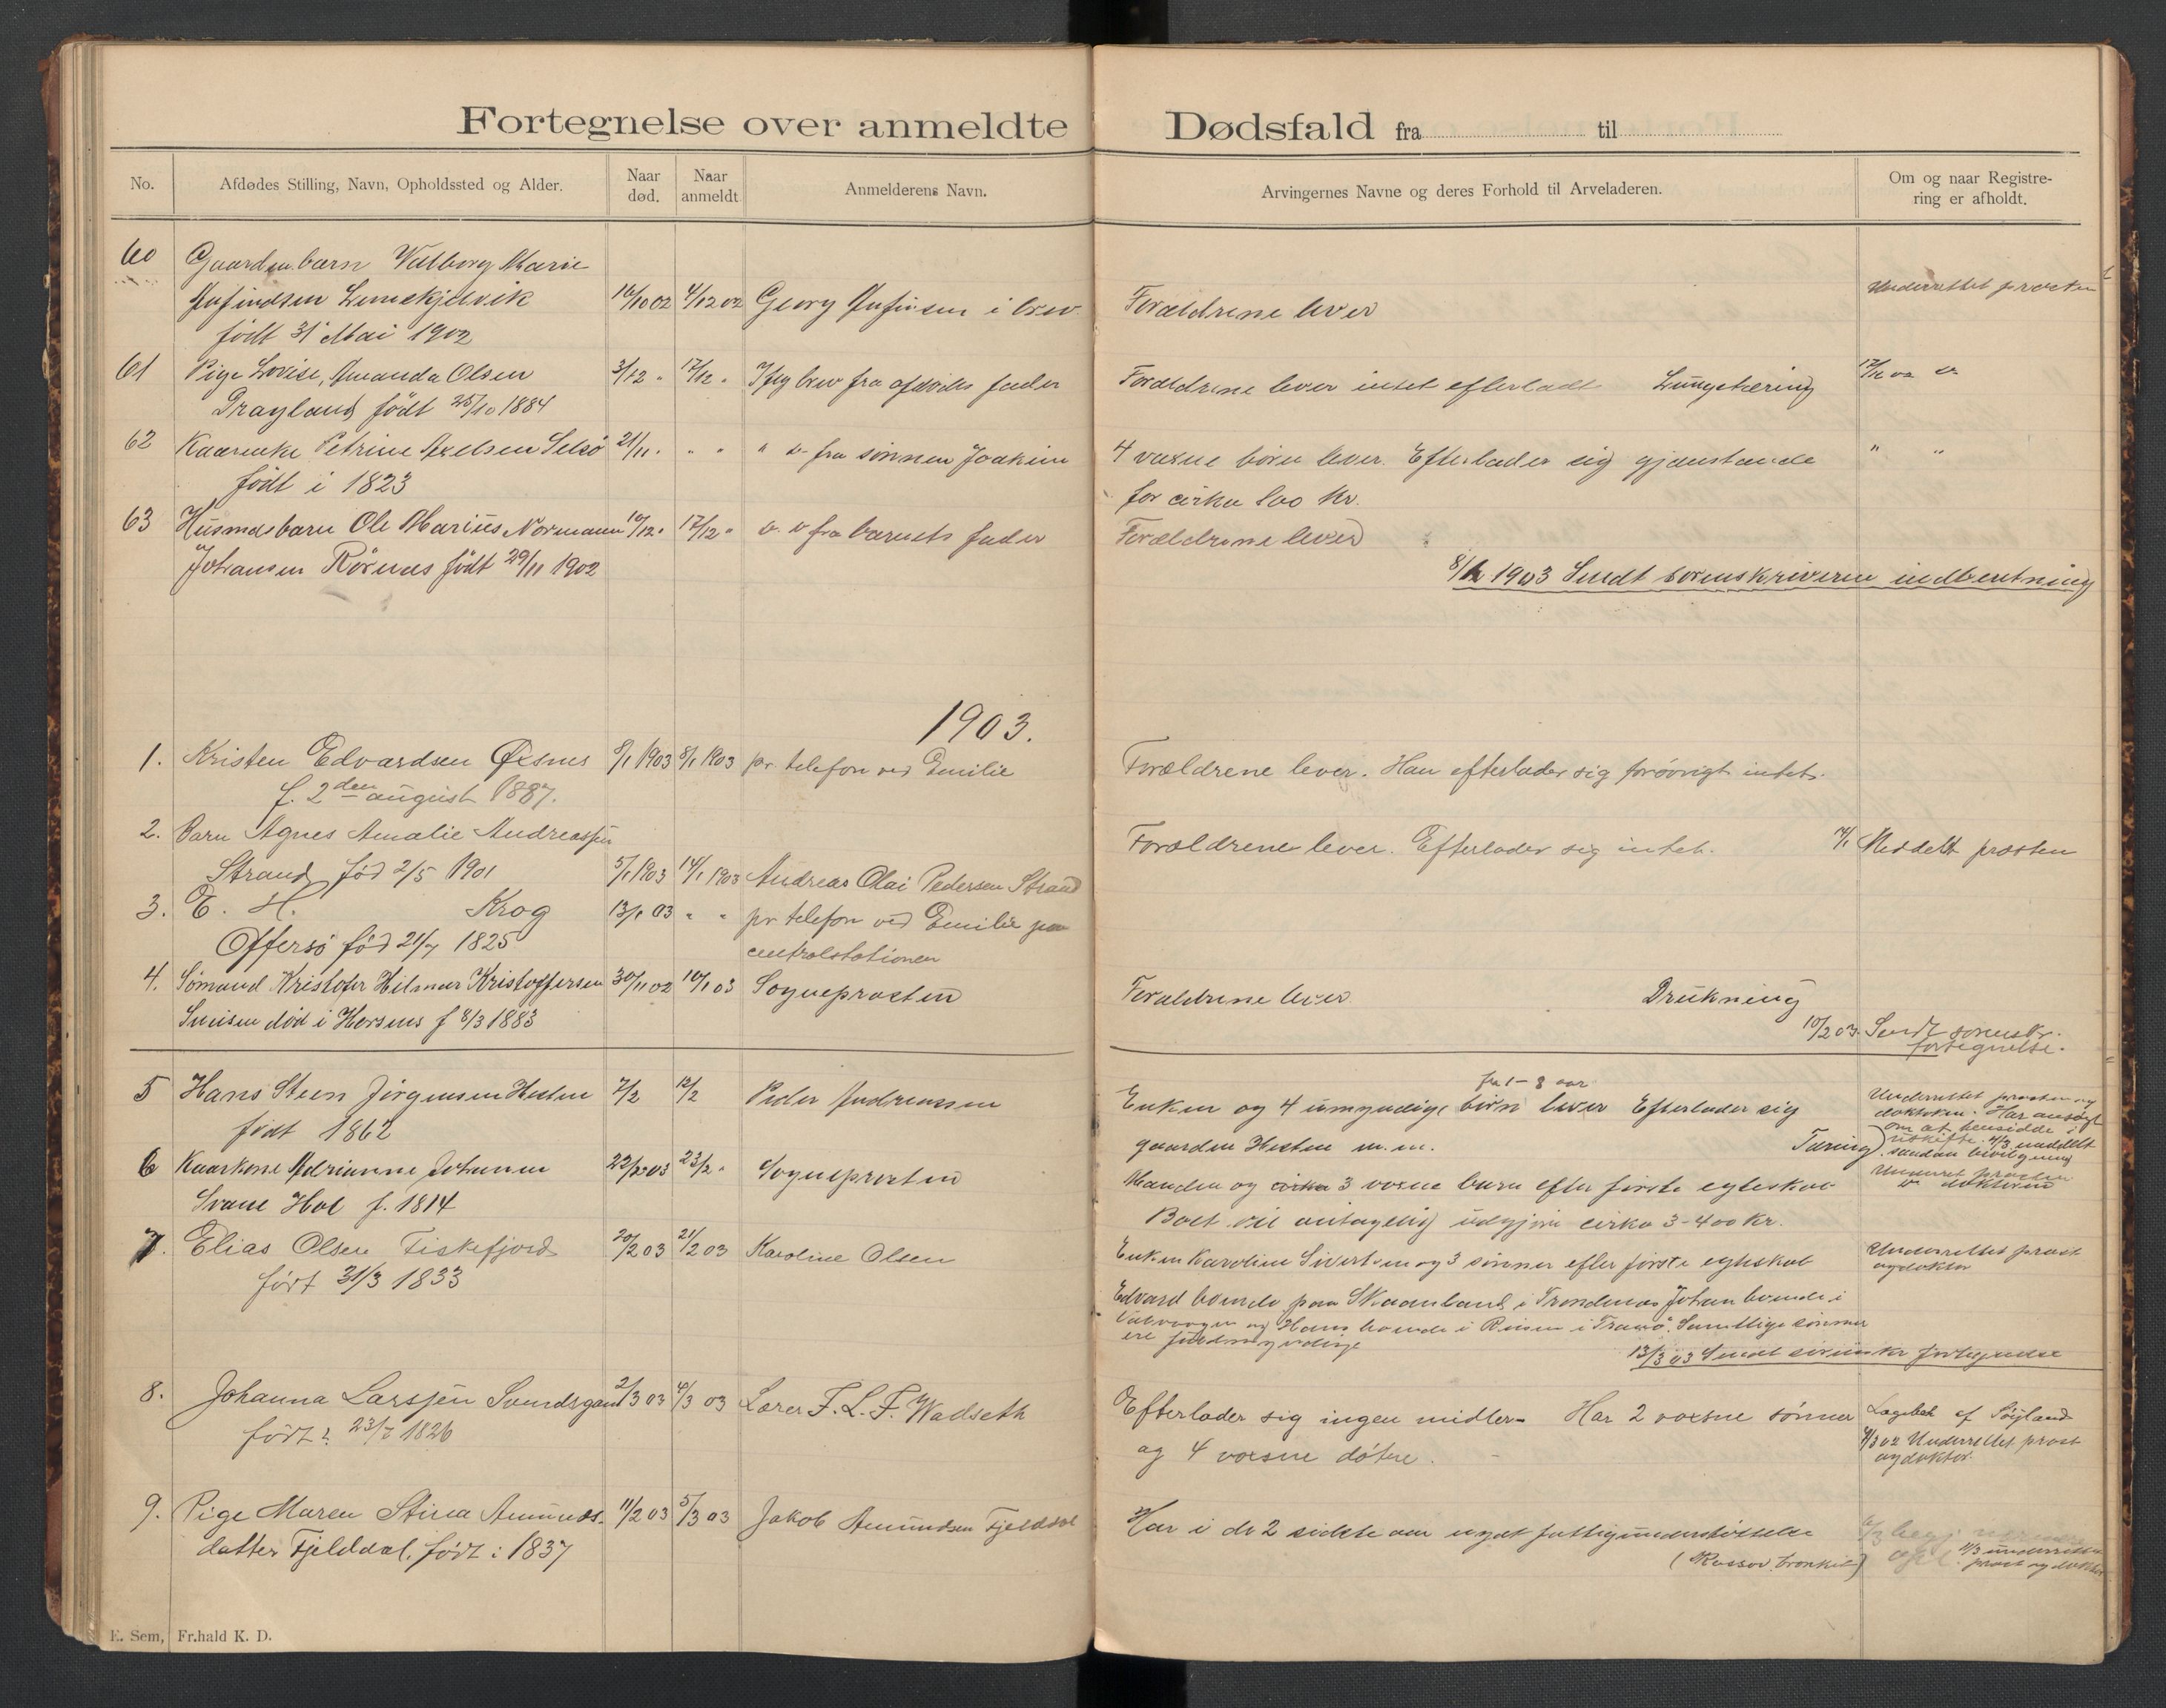 Fortegnelse over anmeldte Dødsfald fra til
No. Afdødes Stilling, Navn, Opholdssted og Alder. Naar død. Naar anmeldt Anmelderens Navn. Arvingernes Navne og deres Forhold til Arveladeren. Om og naar Registrering er afholdt.
60 Gaardm. barn Valborg Marie
16/10 02 4/12 02 Georg i brev Forældrene lever Underrettet præsten
født 31 Mai 1902
61 Pige Lovise, Amanda Olsen 3/12 " 17/12 " Iflg brev fra afdødes fader Forældrene lever intet efterladt Lungetæring 17/12 02 do
Dragland født 25/10 1884
62 Kaarenke Petrine Axelsen Selsø 21/11 " " " " do fra sønnen Joakim 4 voxne børn lever. Efterlader sig gjenstande " "
født i 1823 for cirka 100 Kr.
63 Husmdsbarn Ole Marius Normann 10/12 " 17/12 " do do fra barnets fader Forældrene lever
Johansen Rørnes født 29/11 1902 8/1 1903 Sendt sorenskriveren indberetning
1903.
1. Kristen Edvardsen Øxnes 8/1 1903 8/1 1903 pr. telefon ved Emilie Forældrene lever. Han efterlader sig forøvrigt intet.
f. 2den august 1887.
2. Barn Agnes Amalie Andreassen Forældrene lever. Efterlader sig intet. 14/1 Meddelt præsten
Strand fød 2/5 1901 5/1 1903 14/1 1903 Andreas Olai Pedersen Strand
3. E. H. Krog 13/1 03 " " pr telefon ved Emilie paa
Offersø fød 21/7 1825 centralstationen
4. Sømand Kristofer Hilmar Kristoffersen 30/11 02 10/1 03 Sogneprosten Forældrene lever. Drukning
død i Horsens f 8/3 1883 10/2 03. Sendt sorenskr.
fortegnelse.
5 Hans Steen Jørgensen Hesten 7/2 12/2 Peder Andreassen Enken og 4 umyndige børn fra 1-8 aar lever Efterlader sig Underrettet præsten og
doktoren. Har ansøgt
født 1862 gaarden Hesten m.m. Tæring om at hensidde i
uskifte. 4/3 meddelt
saadan bevilgning
6 Kaarkone Adrianne Johanna 22/2 03 23/2 " Sogneprosten Manden og cirka 3 voxne barn efter første egteskab Underret præsten
do doktoren
Svane Hol f. 1814 Boet vil antagelig udgjøre cirka 3-400 Kr.
7. Elias Olsen Fiskefjord 20/2 03 21/2 03 Karoline Olsen Enken Karoline Sivertsen og 3 sønner efter første egteskab Underrettet prost
og doktor
født 31/3 1833 Edvard boende paa Skaanland i Trondenæs Johan boende i
og Hans boende i i Tromsø. Samtlige sønner
ere fuldmyndige
13/3 03 Sendt sorenskr fortegnelse
8. Johanna Larssen Sandsgaard 2/3 03 4/3 03 Lærer F. L. F. Wadseth Efterlader sig ingen midler. Har 2 voxsne sønner
født 1826 og 4 voxsne døtre. 4/3 02 Underrettet prost
og doktor.
9. Pige Maren Stina Amunds- 11/2 03 5/3 03 Jakob Amundsen Fjelddal Har i de 2 sidste aar nydt fattigunderstøttelse
datter Fjelddal. født i 1837 (Kassov. bronkit) 11/3 underrettet
prost og doktor
E. Sem, Fr.hald K. D.